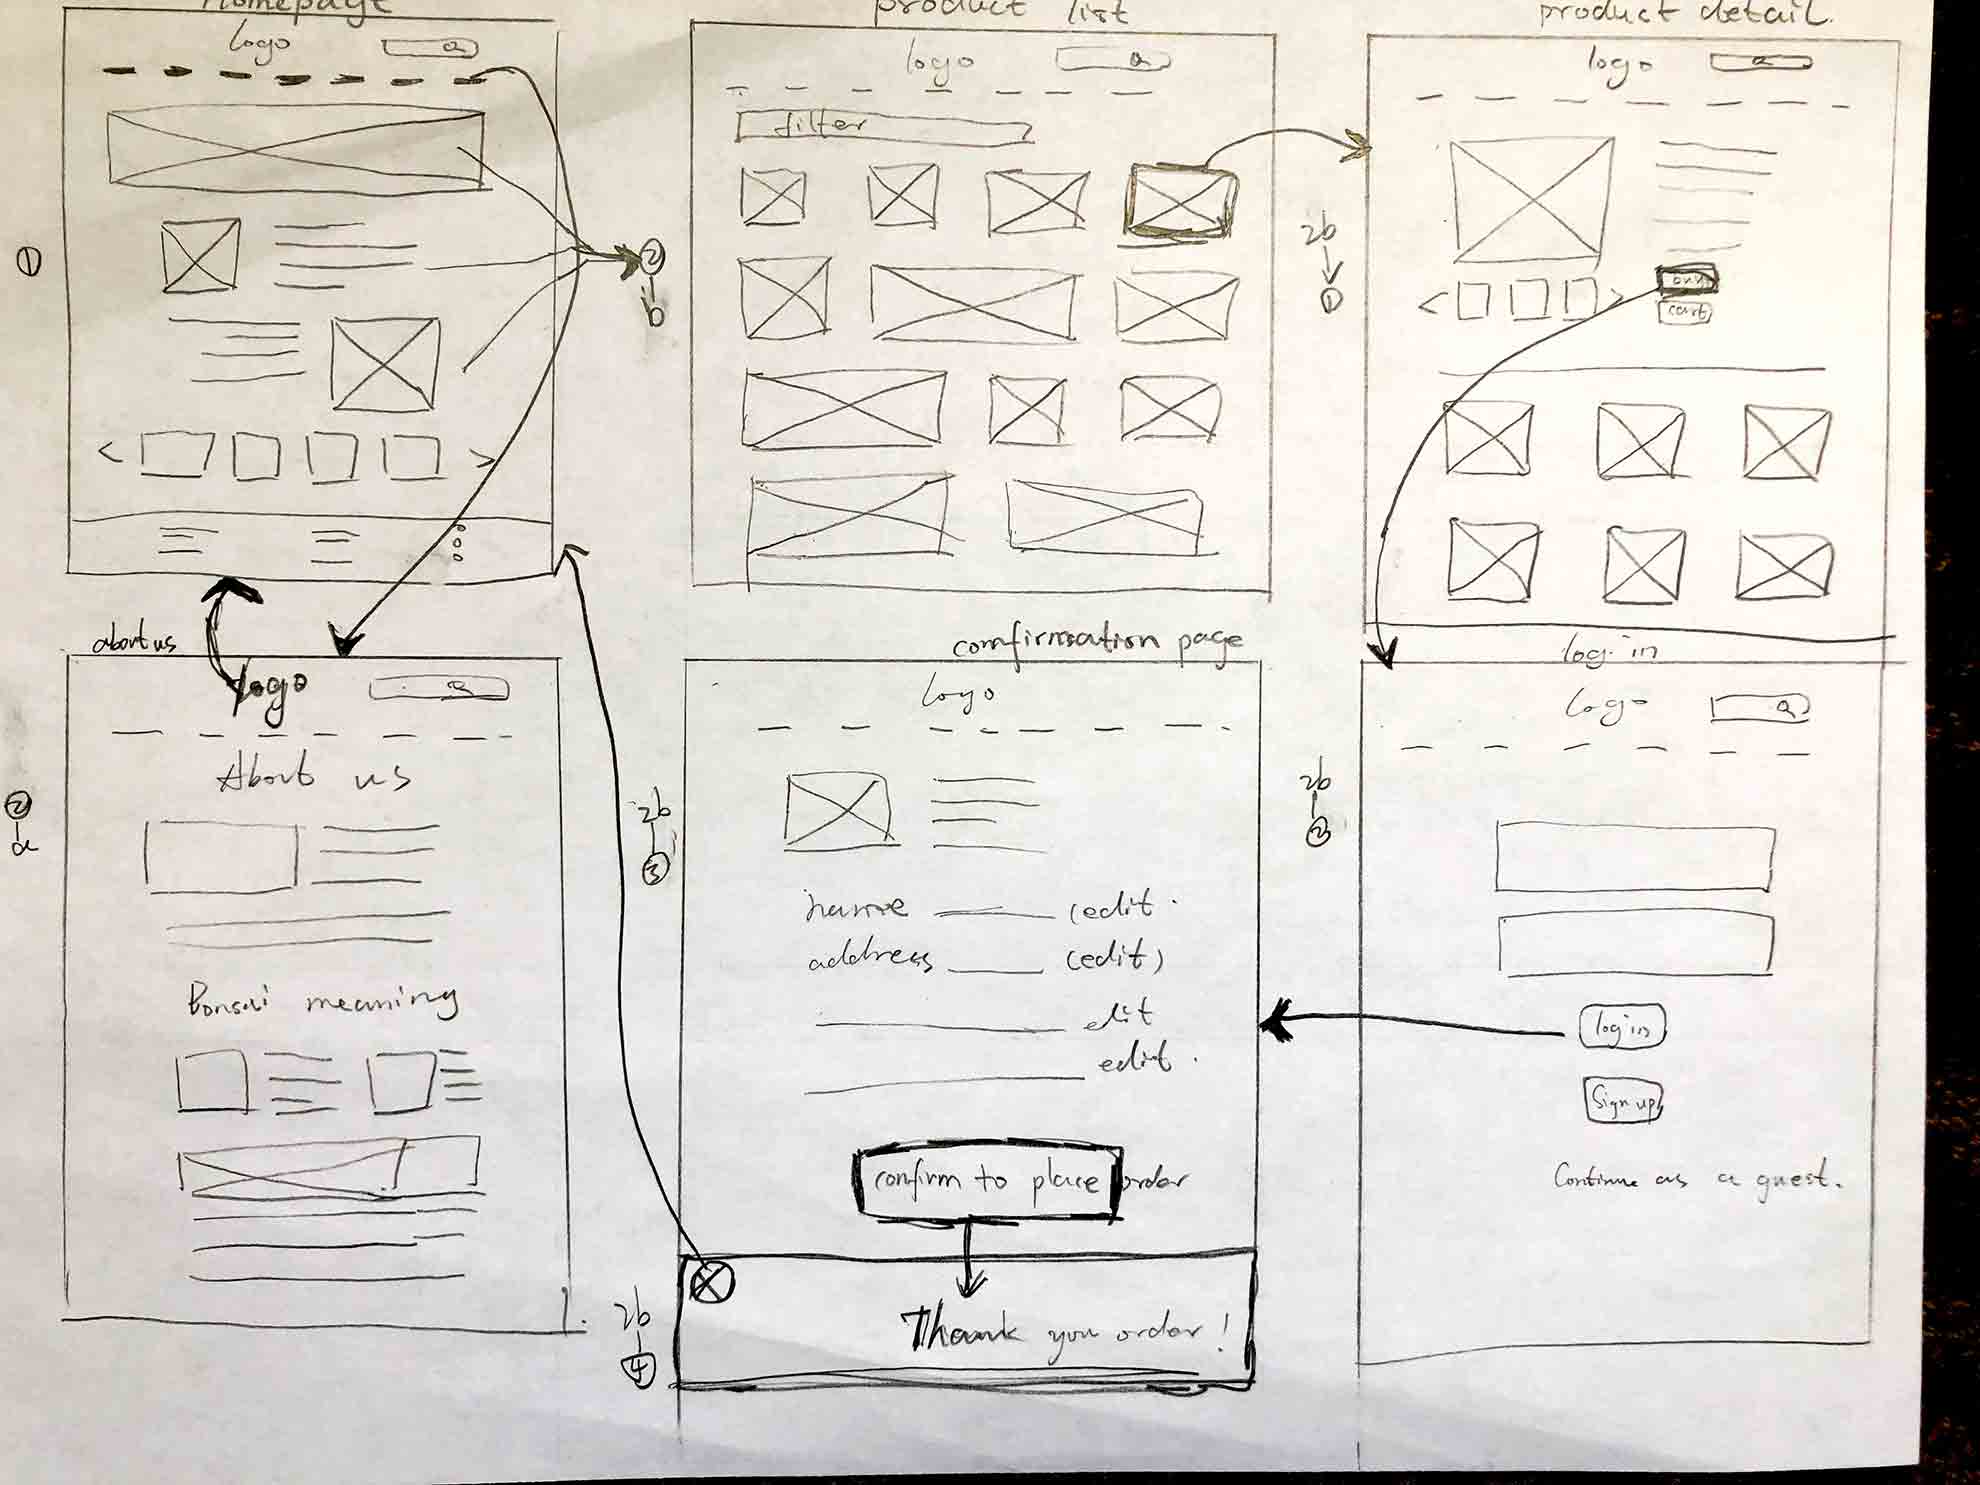 Homepage
logo
①
②
b
product list
logo
filter
product detail.
logo
2b
①
buy
cart
about us
logo
About us
②
a
Bonsai meaning
comfirmation page
logo
2b
③
name (edit
address (edit)
edit
edit
confirm to place order
2b
④
Thank you order!
log in
logo
2b
②
log in
Sign up
Continue as a guest.